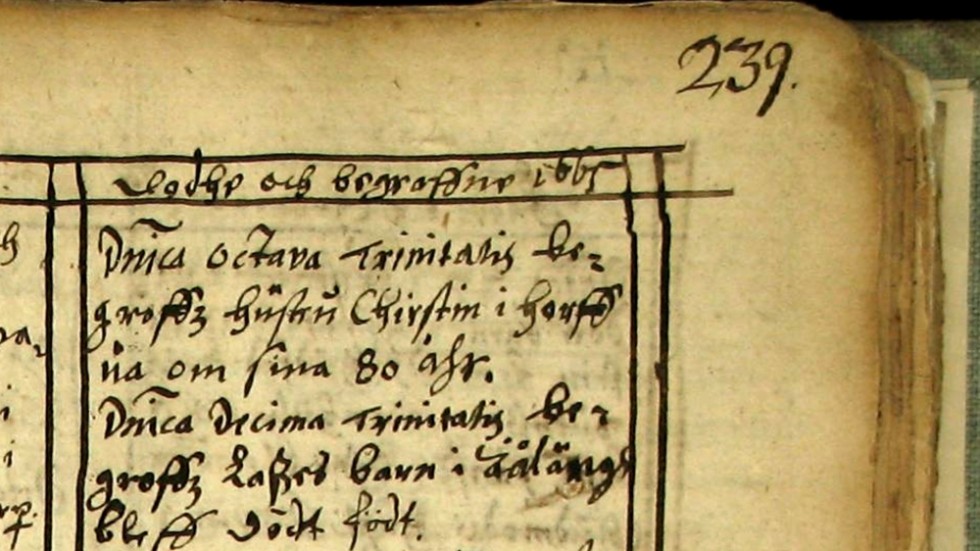 239.
Dödhe och begroffne 1665
Dnica octava Trinitatis be-
groffz hustru Chirstin i horff
na om sina 80 åhr.
Dnica Decima Trinitatis be-
groffz Laßes barn i
bleff dödt födt.